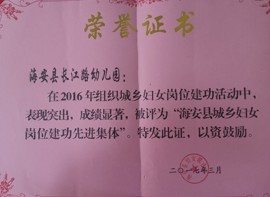 荣誉证书
海安县长江路幼儿园：
在2016年组织城乡妇女岗位建功活动中，
表现突出，成绩显著，被评为“海安县城乡妇女
岗位建功先进集体”。特发此证，以资鼓励。
二〇一七年三月